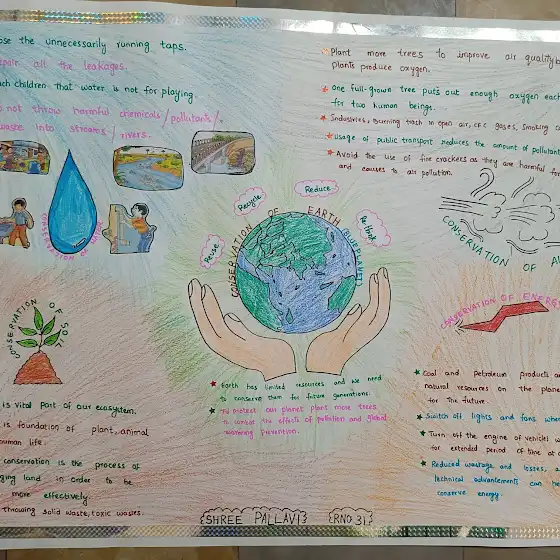 ose the unnecessarily running taps.
epair all the leakages.
ach children That water is not for playing.
o not throw harmful chemicals/pollutants/
waste into streams/rivers.
CONSERVATION OF
Plant more trees to improve air quality
plants produce oxygen.
one full-grown tree puts out enough oxygen each
for two human beings.
Industries, Burning trash in open air, CFC gases, Smoking
usage of public transport reduces the amount of pollutant
Avoid the use of fire crackers as they are harmful for
and causes to air pollution.
CONSERVATION OF AI
Reuse
Recycle
Reduce
Rethink
CONSERVATION OF EARTH (BLUEPLANET)
Earth has limited resources and we need
to conserve them for future generations.
To protect our planet plant more trees
the effects of pollution and global
warming prevention.
CONSERVATION OF SOIL
is vital part of our ecosystem.
is foundation of plant, animal
human life.
conservation is the process of
ging land in order to be
more effectively.
Throwing solid waste, toxic wastes.
CONSERVATION OF ENERG
Coal and Petroleum products a
natural resources on the plane
for The future.
Switch off lights and fans when
Turn off the engine of vehicles
for extended period of time at
Reduced wastage and losses, a
technical advancements can be
conserve energy.
SHREE PALLAVI
RNO 31